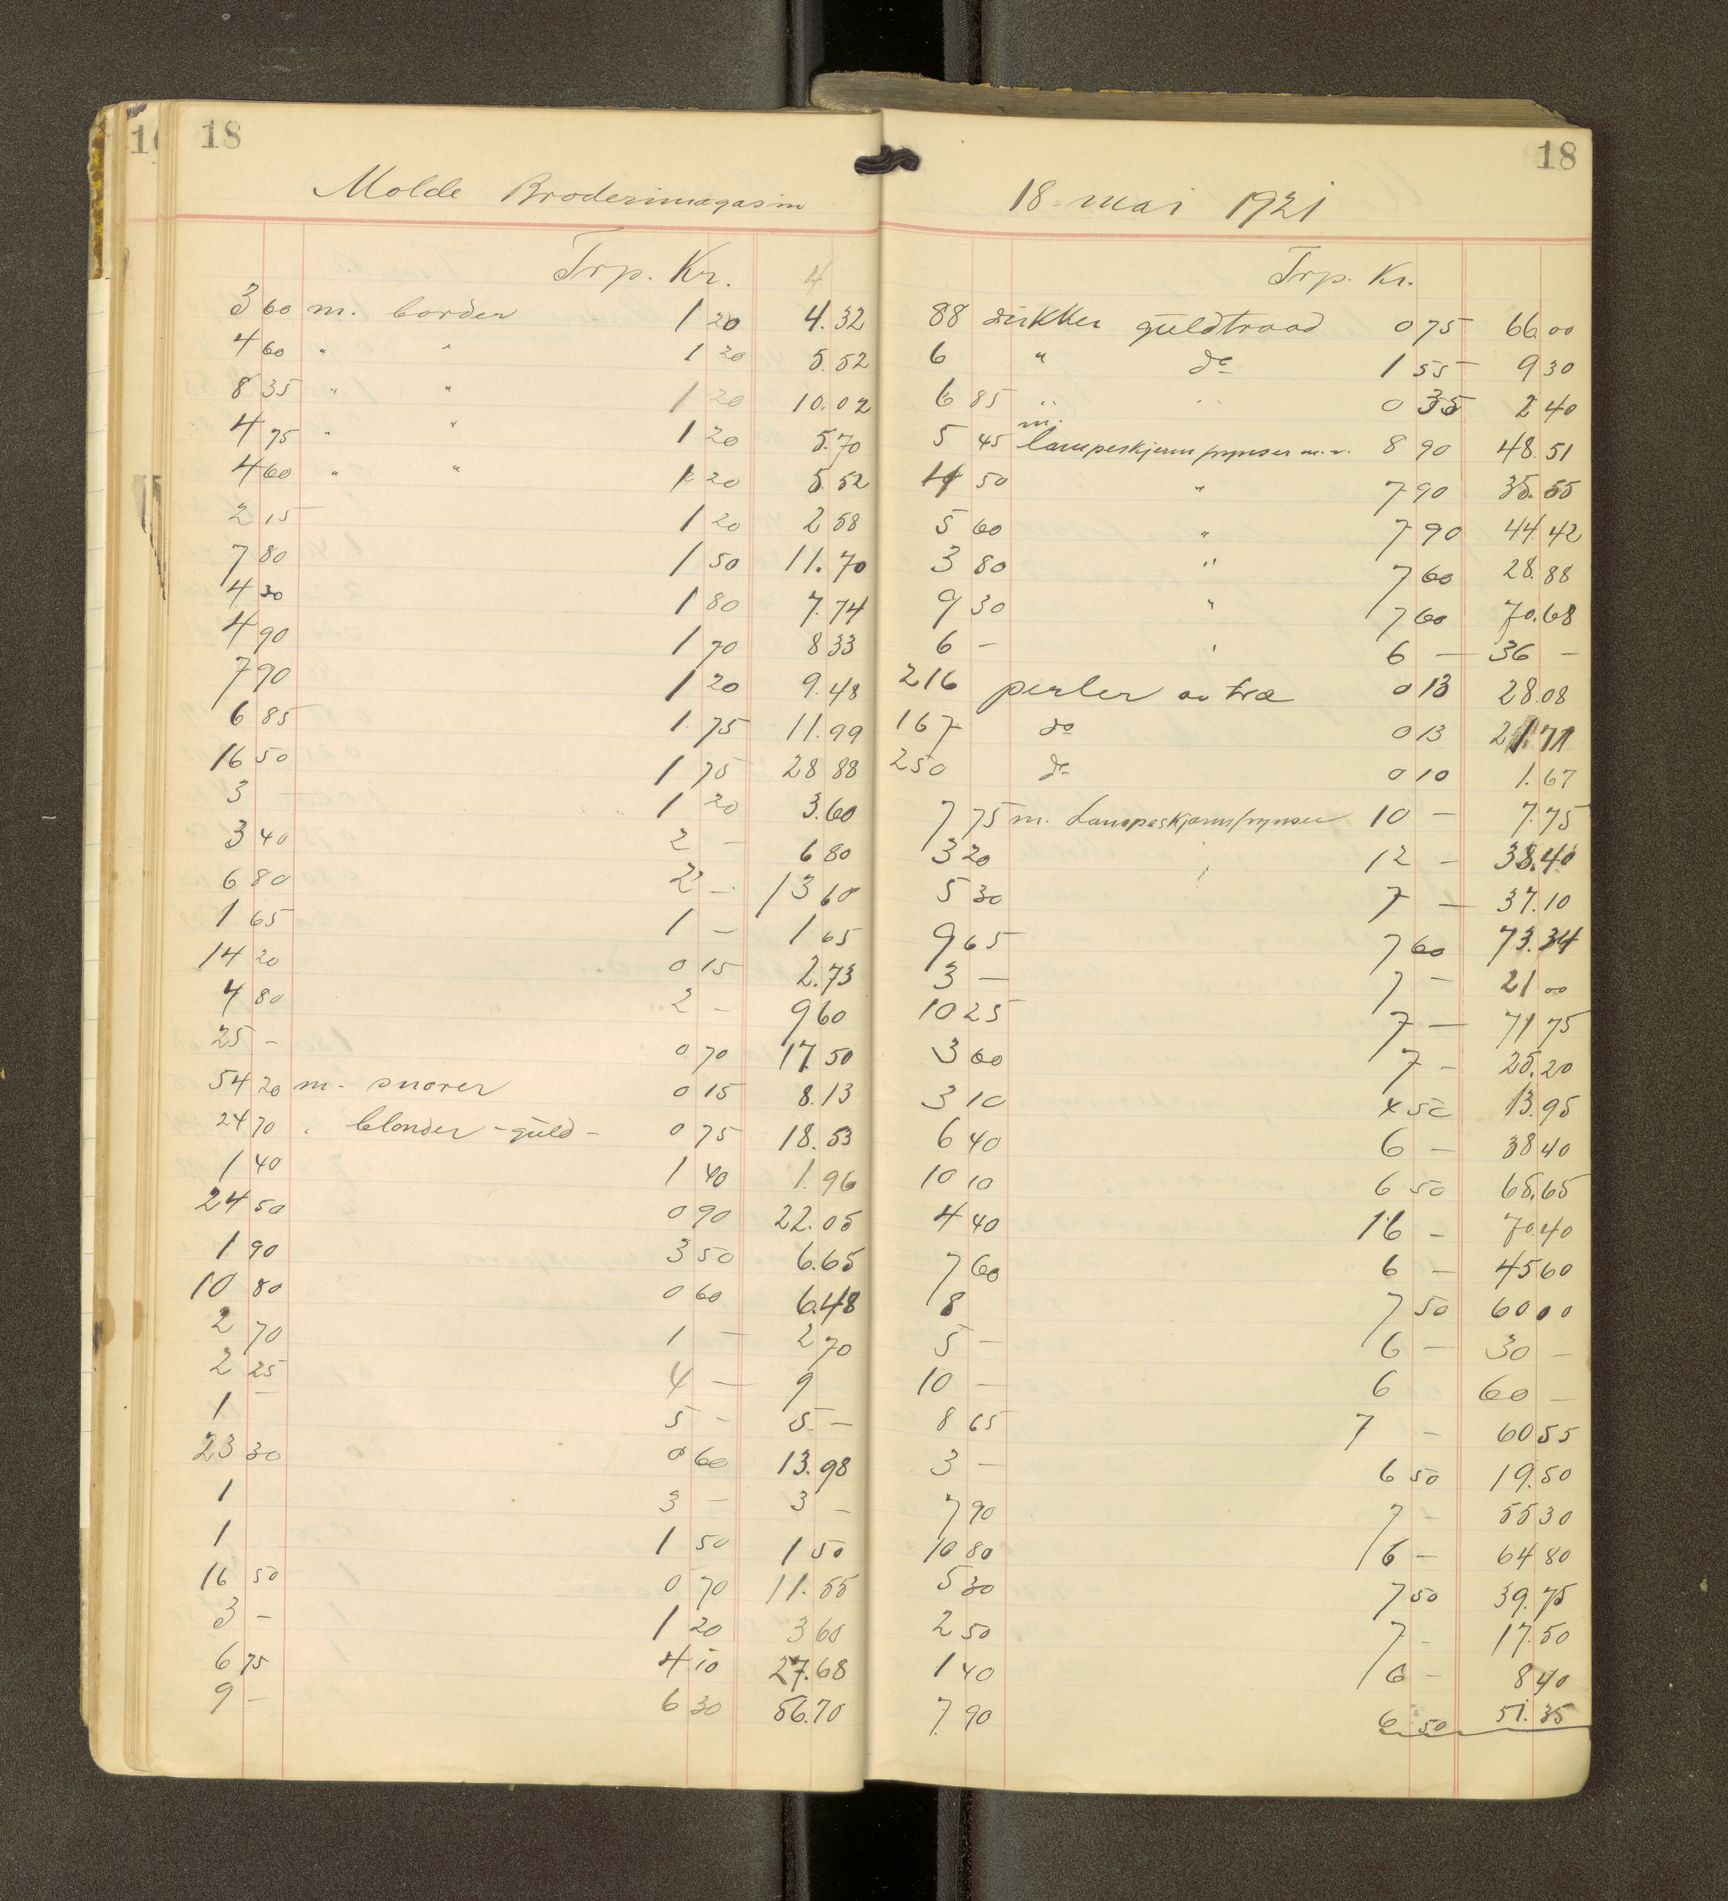 18
Molde Broderimagasin
Trp. Kr.
4
3 60 m. border 1 20 4.32
4 60 " " 1 20 5.52
8 35 " " 1 20 10.02
4 75 " " 1 20 5.70
4 60 " " 1 20 5.52
2 15 1 20 2 58
7 80 1 50 11.70
4 30 1 80 7.74
4 90 1 70 8 33
7 90 1 20 9.48
6 85 1.75 11.99
16 50 1 75 28 88
3 — 1 20 3.60
3 40 2 — 6 80
6 80 2 — 13 60
1 65 1 — 1 65
14 20 0 15 2.73
4 80 2 — 9 60
25 — 0 70 17.50
54 20 m. snorer 0 15 8.13
24 70 " blonder - guld - 0 75 18.53
1 40 1 40 1.96
24 50 0 90 22.05
1 90 3 50 6.65
10 80 0 60 6.48
2 70 1 — 2 70
2 25 4 — 9
1 — 5 — 5 —
23 30 0 60 13.98
1 3 — 3 —
1 1 50 1 50
16 50 0 70 11.55
3 — 1 20 3 60
6 75 4 10 27.68
9 — 6 30 56.70
18
18 mai 1921
Trp. Kr.
88 guldtraad 0 75 66 00
6 " do 1 55 9 30
6 85 " " 0 35 2 40
5 45 m. lampeskjerm 8 90 48.51
4 50 " 7 90 35.55
5 60 " 7 90 44.42
3 80 " 7 60 28.88
9 30 " 7 60 70.68
6 — " 6 — 36 —
216 perler av træ 0 13 28.08
167 do 0 13 21.71
250 do 0 10 1.67
7 75 m. 10 — 7.75
3 20 " 12 — 38.40
5 30 7 — 37.10
9 65 7 60 73.34
3 — 7 — 21 00
10 25 7 — 71 75
3 60 7 — 25.20
3 10 4 50 13.95
6 40 6 — 38 40
10 10 6 50 65.65
4 40 16 — 70.40
7 60 6 — 45 60
8 7 50 60 00
5 — 6 — 30 —
10 — 6 60 —
8 65 7 — 60 55
3 — 6 50 19.50
7 90 7 — 55 30
10 80 6 — 64 80
5 30 7 50 39.75
2 50 7 — 17.50
1 40 6 — 8 40
7 90 6 50 51.35